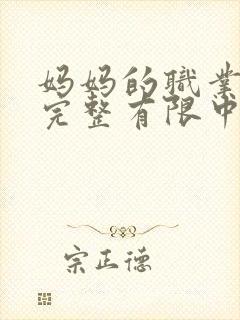 妈妈的职业
完整有限中
宗正德